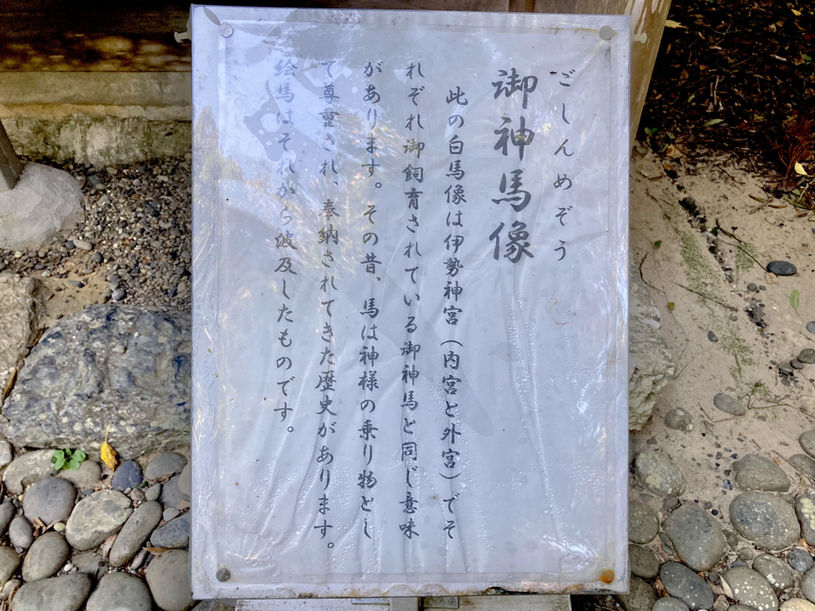 ごしんめぞう
御神馬像
此の白馬像は伊勢神宮（内宮と外宮）でそ
れぞれ御飼育されている御神馬と同じ意味
があります。その昔、馬は神様の乗り物とし
て尊重され、奉納されてきた歴史があります。
絵馬はそれから波及したものです。